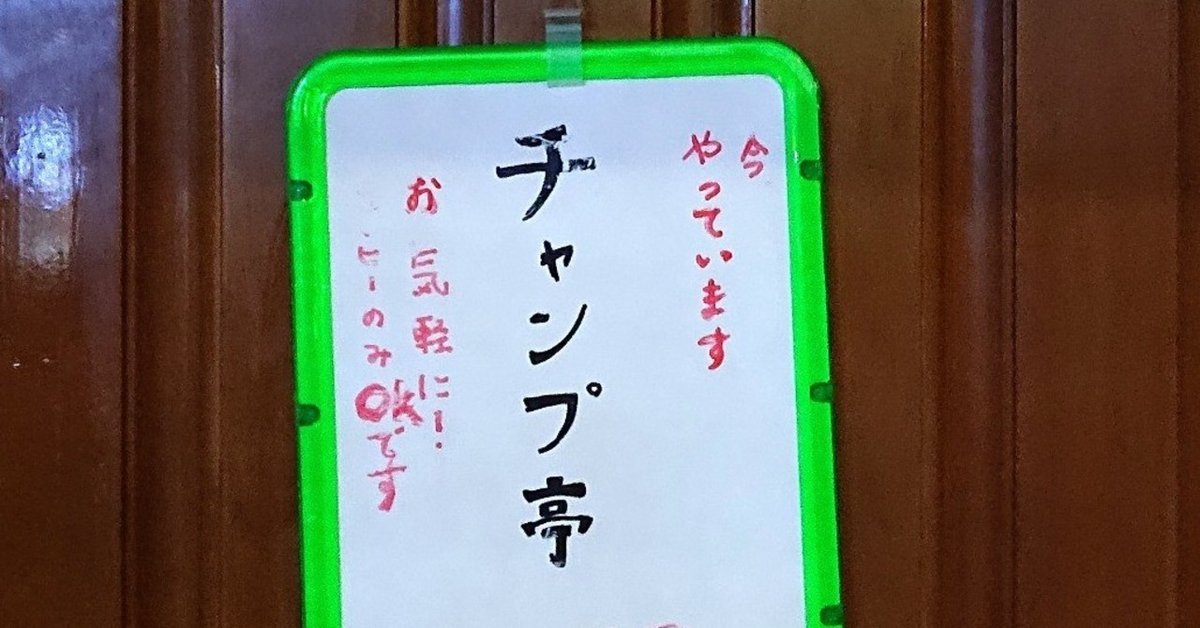 今
やっています
チャンプ亭
お気軽に!
ヒーのみOKです